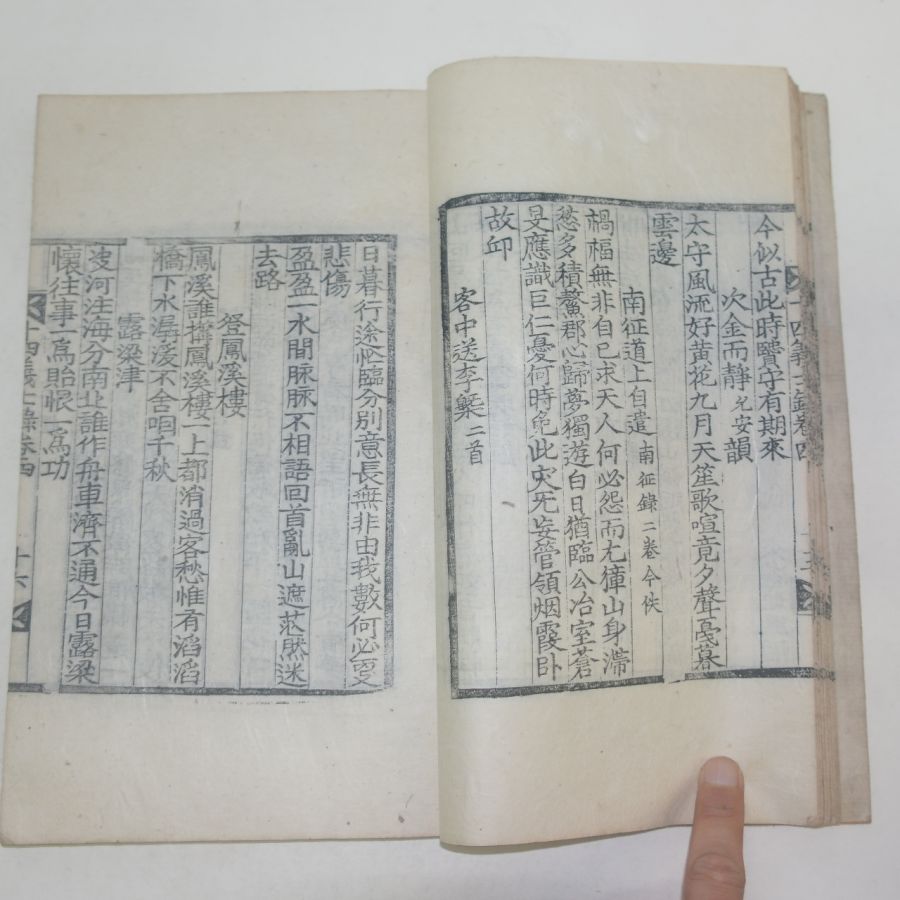 十四義士錄卷四
今似古此時瞻守有期來
次金而靜允安韻
太守風流好黃花九月天笙歌喧竟夕聲憂暮
雲邊
南征道上自遣 南征錄二卷今佚
禍福無非自己求天人何必怨而尤獐山身滯
愁多積鰲郡心歸夢獨遊白日猶臨公冶室蒼
旻應識巨仁憂何時免此灾旡妄管領烟霞卧
故邱
客中送李㰒 二首
日暮行途恠臨分別意長無非由我數何必更
悲傷
盈盈一水間脉脉不相語回首亂山遮茫然迷
去路
登鳳溪樓
鳳溪誰擅鳳溪樓一上都消過客愁惟有滔滔
橋下水潺湲不舍咽千秋
露梁津
浚河注海分南北誰作舟車濟不通今日露梁
懷往事一爲貽恨一爲功
十四義士錄卷四 十六